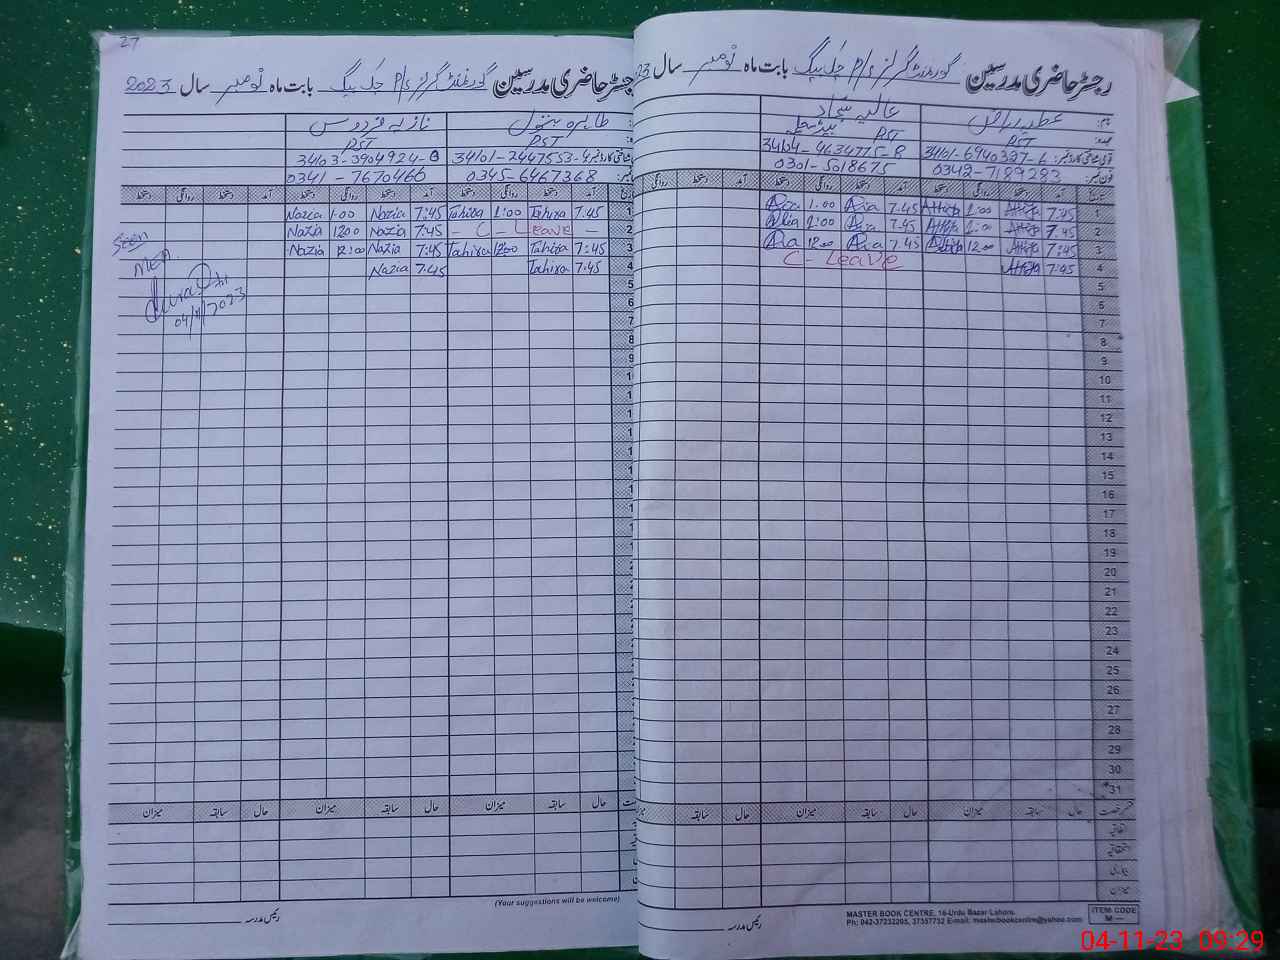 27
رجسٹر حاضری مدرسین گورنمنٹ گرلز P/S چک بیگ بابت ماہ نومبر سال 2023
طاہرہ بتول نازیہ فردوس
PST PST
34101-2447553-4 34103-3904924-8
0345-6467368 0341-7670466
آمد دستخط روانگی دستخط آمد دستخط روانگی دستخط آمد دستخط روانگی
Nazia 1:00 Nazia 7:45 Tahira 1:00 Tahira 7:45 1
Nazia 1200 Nazia 7:45 - C - Leave - 2
Nazia 12:00 Nazia 7:45 Tahira 1200 Tahira 7:45 3
Nazia 7:45 Tahira 7:45 4
5
6
7
8
9
Seen
04/11/2023
حال سابقہ میزان حال سابقہ میزان حال سابقہ میزان
(Your suggestions will be welcome)
رئیس مدرسہ
رجسٹر حاضری مدرسین گورنمنٹ گرلز P/S چک بیگ بابت ماہ نومبر سال 23
نام: عطیہ ریاض عالیہ سجاد
عہدہ: PST PST
قومی شناختی کارڈ نمبر: 34101-6940327-6 34104-4634775-8
فون نمبر: 0342-7189283 0301-5018675
تاریخ آمد دستخط روانگی دستخط آمد دستخط روانگی دستخط آمد دستخط روانگی
Alia 1.00 Alia 7.45 Attiya 1:00 Attiya 7:45 1
Alia 1:00 Alia 7.45 Attiya 1:00 Attiya 7.45 2
Alia 1200 Alia 7.45 Attiya 1200 Attiya 7:45 3
C - Leave Attiya 7:45 4
5
6
7
8
9
10
11
12
13
14
15
16
17
18
19
20
21
22
23
24
25
26
27
28
29
30
31
قسم رخصت حال سابقہ میزان حال سابقہ میزان حال سابقہ میزان
اتفاقیہ
استحقاقیہ
بیماری
میزان
رئیس مدرسہ
MASTER BOOK CENTRE, 16-Urdu Bazar Lahore.
Ph: 042-37232205, 37357732 E-mail: masterbookcentre@yahoo.com
ITEM CODE
M —
04-11-23 09:29